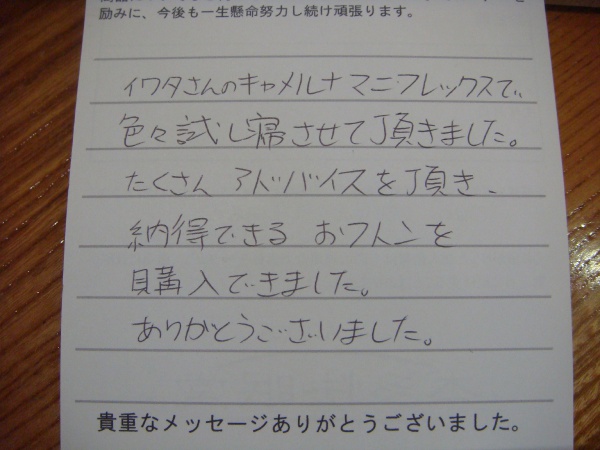 励みに、今後も一生懸命努力し続け頑張ります。
イワタさんのキャメルナマニフレックスで、
色々試し寝させて頂きました。
たくさんアドバイスを頂き、
納得できるおフトンを
購入できました。
ありがとうございました。
貴重なメッセージありがとうございました。